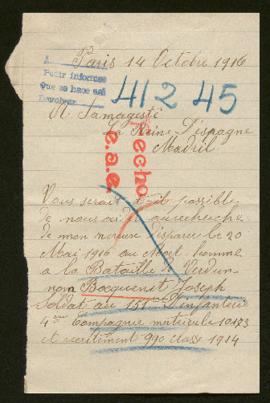 Paris 14 Octobre 1916
A
Pedir informes
Que se hace esa
41245
A Samagesté
La Reine D'espagne
Madrid
Hecho
e.a.e.
Vous serait il possible
de nous recherche
de mon disparu le 20
Mai 1916 au Mort homme
a la Bataille de Verdun
nom Bocquenet Joseph
Soldat au 151me D'infanterie
4me Compagnie matricule 10173
et recrutement 990 classe 1914